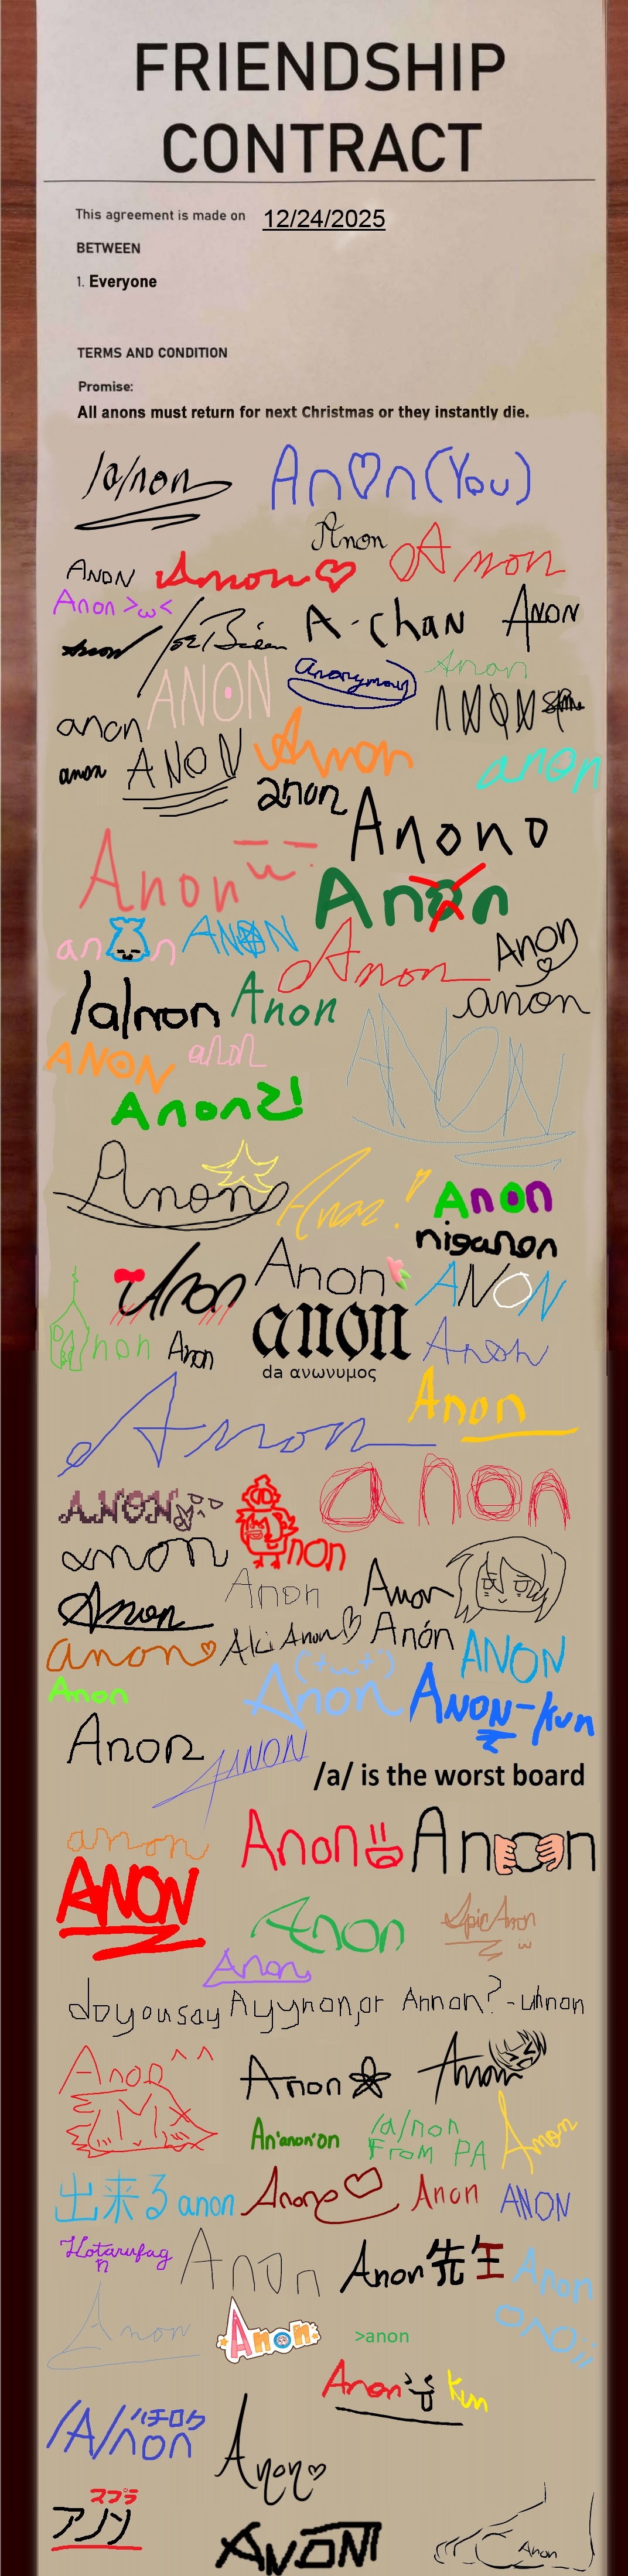 FRIENDSHIP
CONTRACT
This agreement is made on 12/24/2025
BETWEEN
1. Everyone
TERMS AND CONDITION
Promise:
All anons must return for next Christmas or they instantly die.
/a/non
An♡n (You)
Anon
Anon
Anon♡
Anon
Anon >ω<
Anon
Joe Biden
A-chan
Anon
ANON
anonymous
Anon
anon
anon
ANON
Anon
anon
anon
Anono
Anon
Anon
an n
ANON
Anon
Anon
/a/non
Anon
anon
ANON
anon
ANON
Anon2!
Anon
Anon!
Anon
niganon
Anon
Anon
ANON
non
Anon
anon
da ανωνυμος
Anon
Anon
Anon
ANON
anon
non
anon
Anon
Anon
Anon
anon♡
Aki Anon♡
Anón
ANON
Anon
Anon
ANON-kun
Anon
ANON
/a/ is the worst board
anon
Anon
Anon
ANON
Anon
Epic Anon
Anon
do you say Ayynon, or Annon? - Unnon
Anon ^^
Anon
Anon
An'anon'on
/a/non
From PA
Anon
出来る anon
Anon♡
Anon
ANON
Hotarufag
Anon
Anon先生
Anon
Anon
Anon
>anon
Anon
kun
/A/non
ハチロク
Anon♡
マプラ
アノン
ANON
Anon